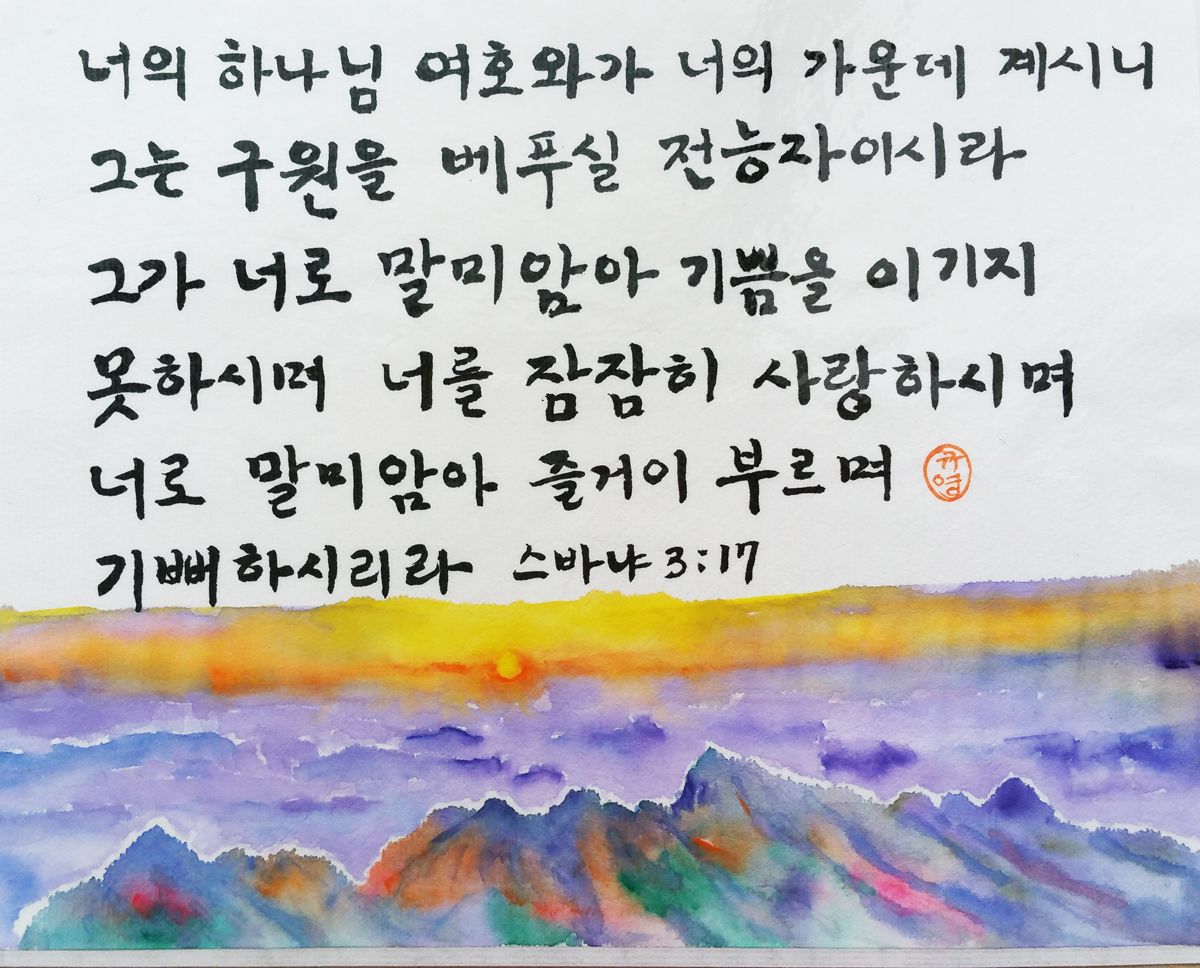 너의 하나님 여호와가 너의 가운데 계시니
그는 구원을 베푸실 전능자이시라
그가 너로 말미암아 기쁨을 이기지
못하시며 너를 잠잠히 사랑하시며
너로 말미암아 즐거이 부르며
규영
기뻐하시리라 스바냐 3:17